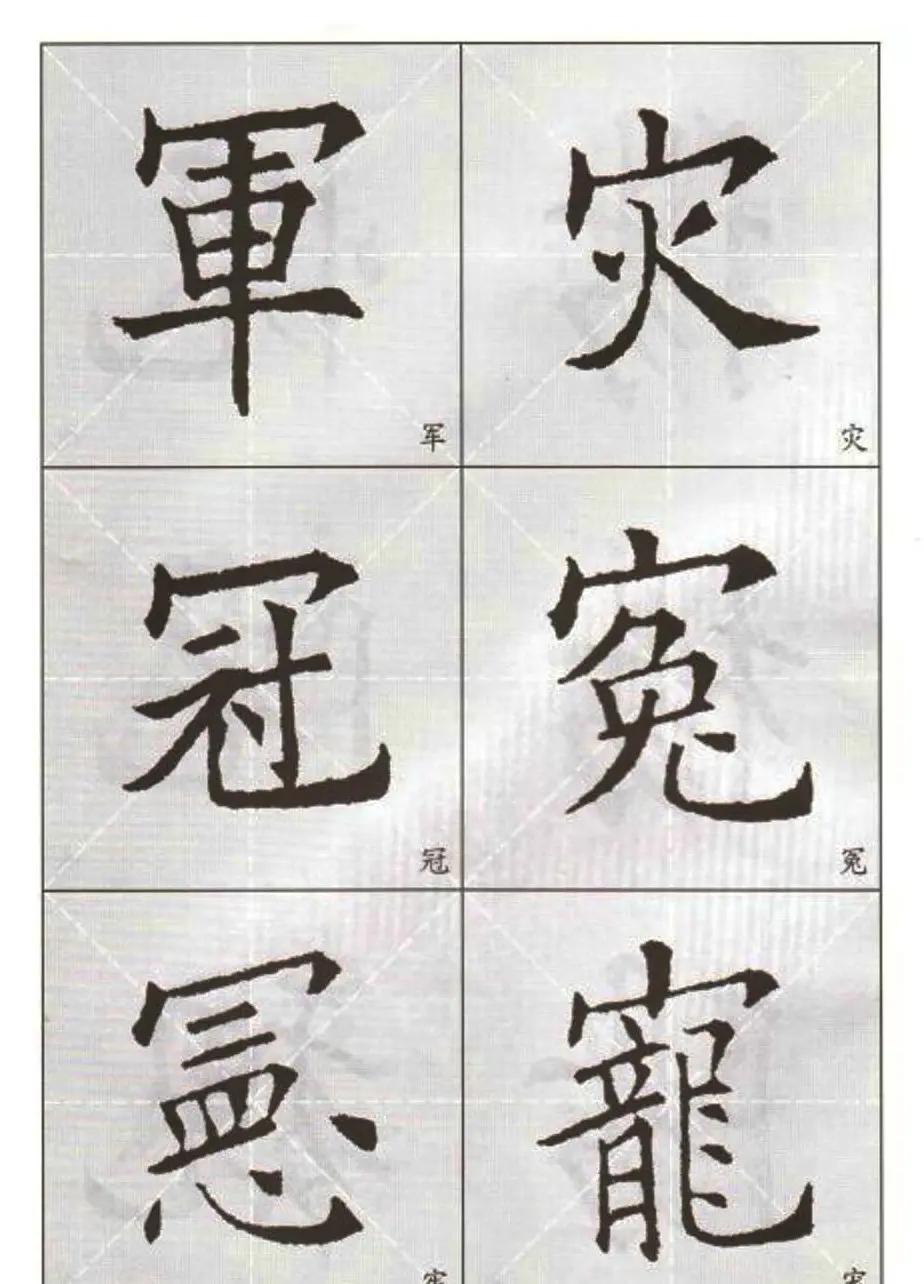 軍 灾
军 灾
冠 寃
冠 冤
憲 寵